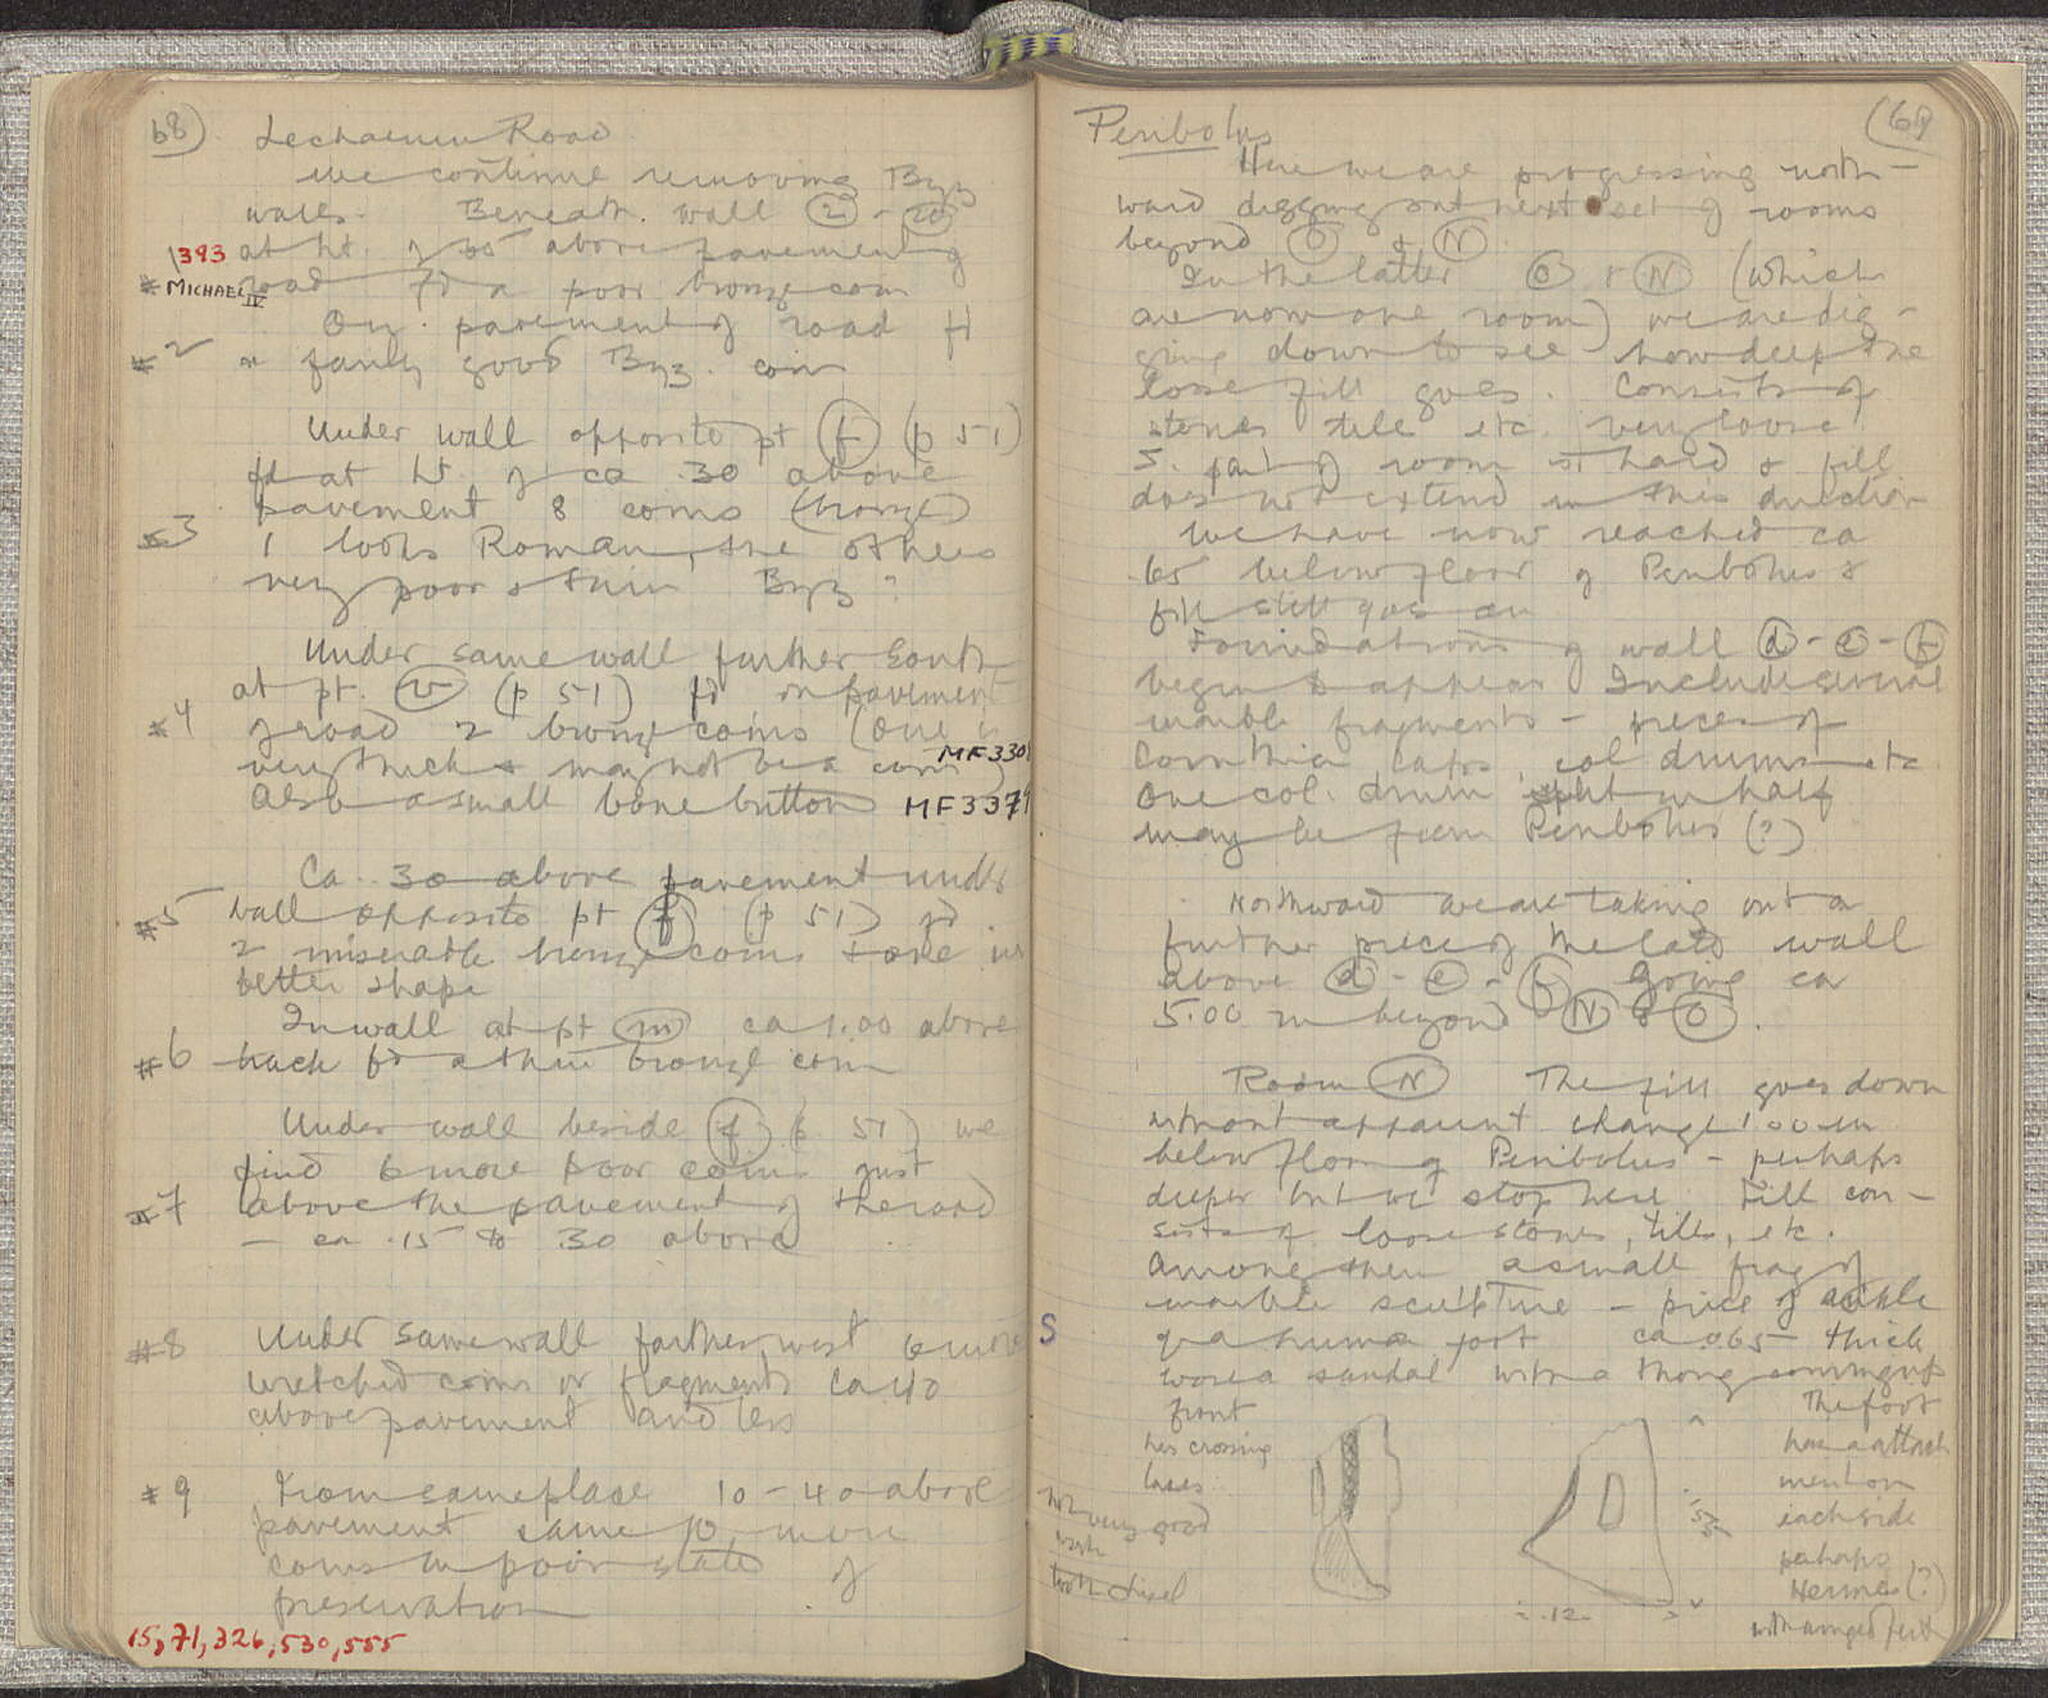 68)
Lechaeum Road
We continue removing Byz
walls. Beneath wall (2) -
1393 at ht. of .35 above pavement of
# MICHAEL IV road fd a poor bronze coin
On pavement of road fd
#2 a fairly good Byz. coin
Under wall opposite pt (f) (p 51)
fd at ht. of ca .30 above
pavement 8 coins (bronze)
#3 1 looks Roman, the others
very poor & thin Byz ?
Under same wall further South
at pt. (v) (p 51) fd on pavement
#4 of road 2 bronze coins (one is
very thick & may not be a coin) MF 330
Also a small bone button MF 3379
Ca .30 above pavement under
#5 wall opposite pt (f) (p 51) fd
2 miserable bronze coins & one in
better shape
In wall at pt (m) ca 1.00 above
#6 fd a thin bronze coin
Under wall beside (f) (p 51) we
find 6 more poor coins just
#7 above the pavement of the road
— ca .15 to .30 above
#8 Under same wall farther west 6 more
wretched coins or fragments ca 40
above pavement and less
#9 From same place 10 - 40 above
pavement came 10 more
coins in poor state of
preservation
15, 71, 326, 530, 555
(69
Peribolus
Here we are progressing north-
ward digging out next set of rooms
beyond (O) & (N).
In the latter (O) & (N) (which
are now one room) we are dig-
ging down to see how deep the
loose fill goes. Consists of
stones tile etc. very loose.
S. part of room is hard & fill
does not extend in this direction
We have now reached ca
.65 below floor of Peribolus &
fill still goes on
Foundations of wall (d) - (e) - (f)
begin to appear Include several
marble fragments - pieces of
Corinthian caps, col drums etc
One col. drum split in half
may be from Peribolus (?)
Northward we are taking out a
further piece of the late wall
above (d) - (e) - (f) going ca
5.00 m beyond (N) & (O).
Room (N) The fill goes down
without apparent change 1.00 m
below floor of Peribolus - perhaps
deeper but we stop here. Fill con-
sists of loose stones, tiles, etc.
Among them a small frag of
marble sculpture - piece of ankle
S of a human foot ca .065 thick
wore a sandal with a thong coming up
front
has crossing
laces
not very good
work
tooth chisel
.12
The foot
has attach
ment on
each side
perhaps
Hermes (?)
with winged feet